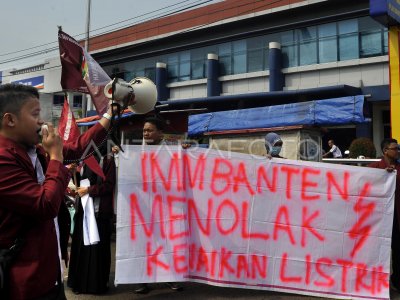 ANTARAFOTO
IMM BANTEN
MENOLAK
KENAIKAN LISTRIK